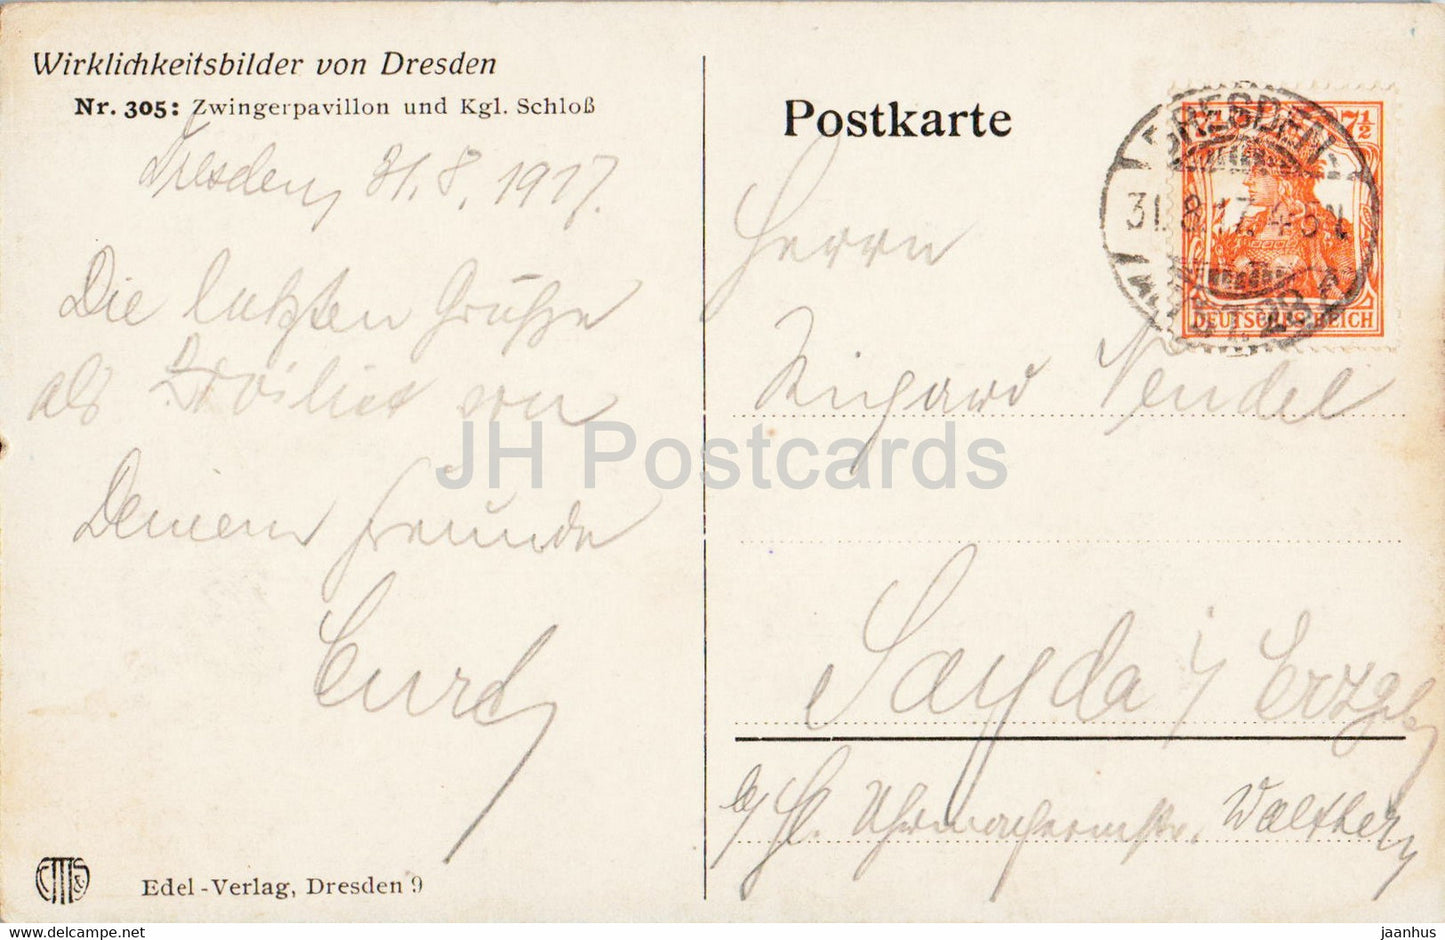 Wirklichkeitsbilder von Dresden
Nr. 305: Zwingerpavillon und Kgl. Schloß
Dresden, 31.8.1917.
Die letzten Grüße
als Zivilist von
Deinem Freunde
Curt
Edel-Verlag, Dresden 9
Postkarte
DRESDEN
31.8.17. 4-5 N
7½
DEUTSCHES REICH
Herrn
Richard Nendel
Sayda i/ Erzgeb
b/ H. Uhrmachermstr. Walther
JH Postcards
hippostcard.com/store/
jaanhus